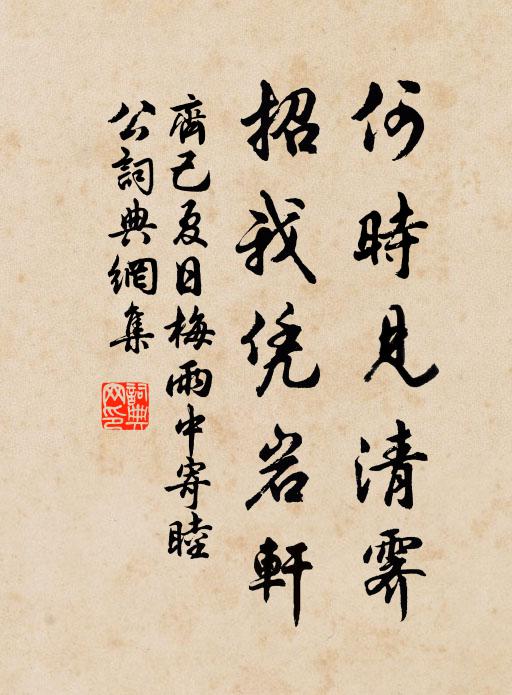 何時見清霽
招我凭岩軒
齊己夏日梅雨中寄睦
公詞典網集
詞典網印